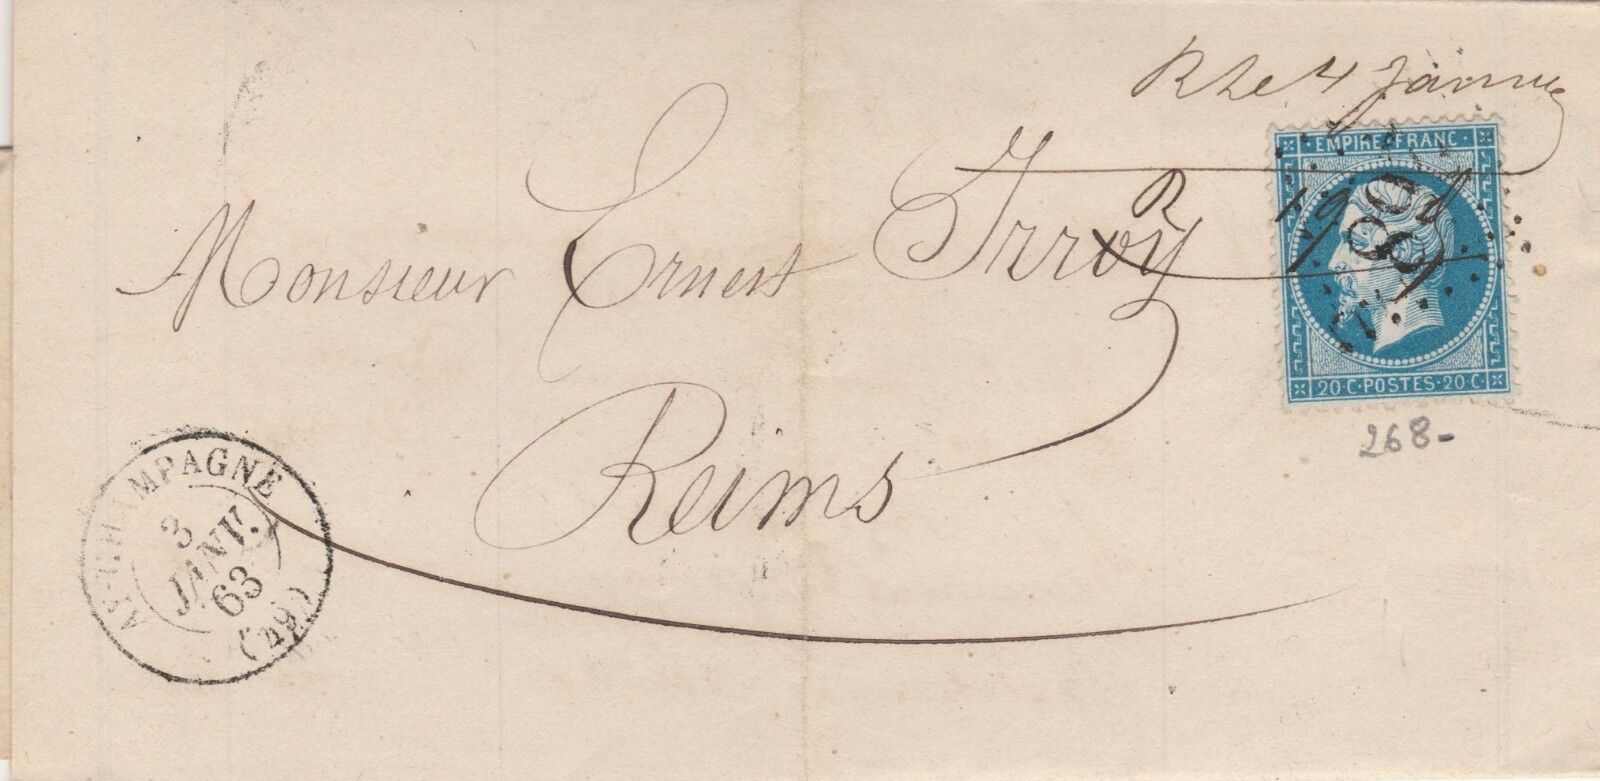 R Le 4 Janvier
EMPIRE FRANC
Monsieur Ernest Irroy
R
20·C·POSTES·20·C
268-
Reims
AY-CHAMPAGNE
3
JANV.
63
(49)